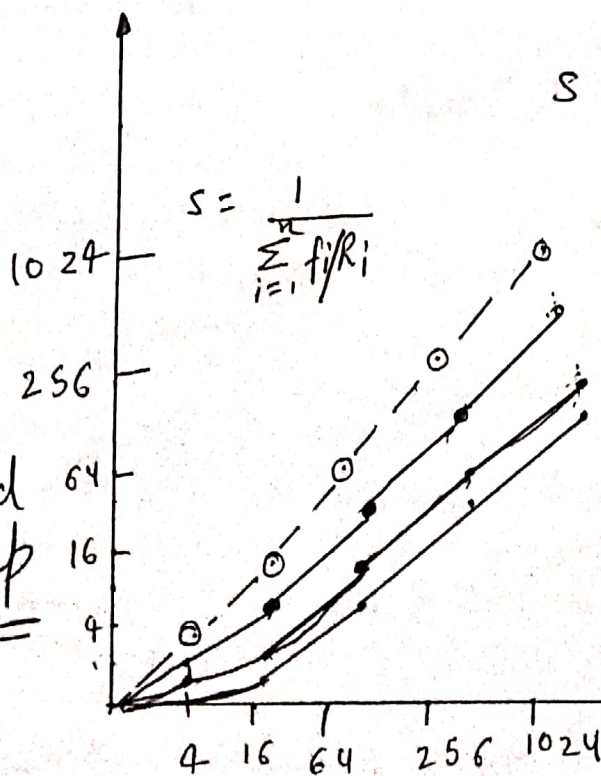 S
S = 1 / n Σ i=1 fi/Ri
1024
256
64
16
4
4 16 64 256 1024